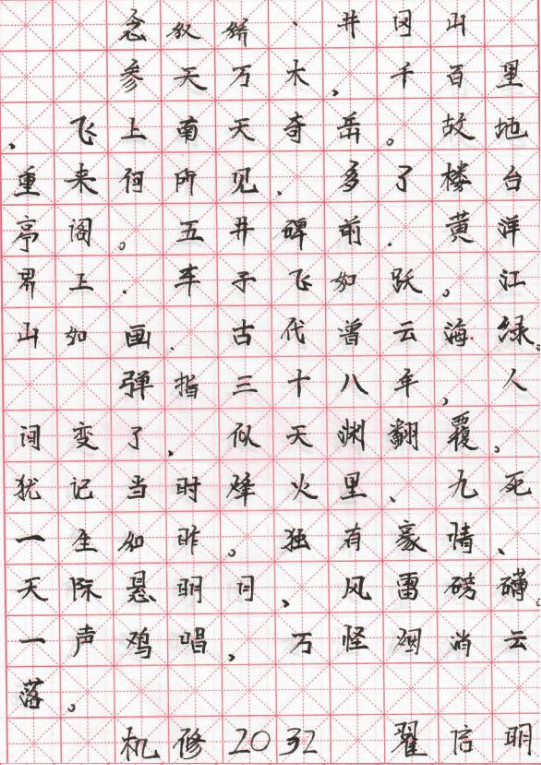 念奴娇·井冈山
参天万木，千百里
，飞上南天奇岳。故地
重来何所见，多了楼台
亭阁。五井碑前，黄洋
界上，车子飞如跃。江
山如画，古代曾云海绿。
弹指三十八年，人
间变了，似天渊翻覆。
犹记当时烽火里、九死
一生如昨。独有豪情、
天际悬明月，风雷磅礴。
一声鸡唱，万怪烟消云
落。
机修2032 翟信明